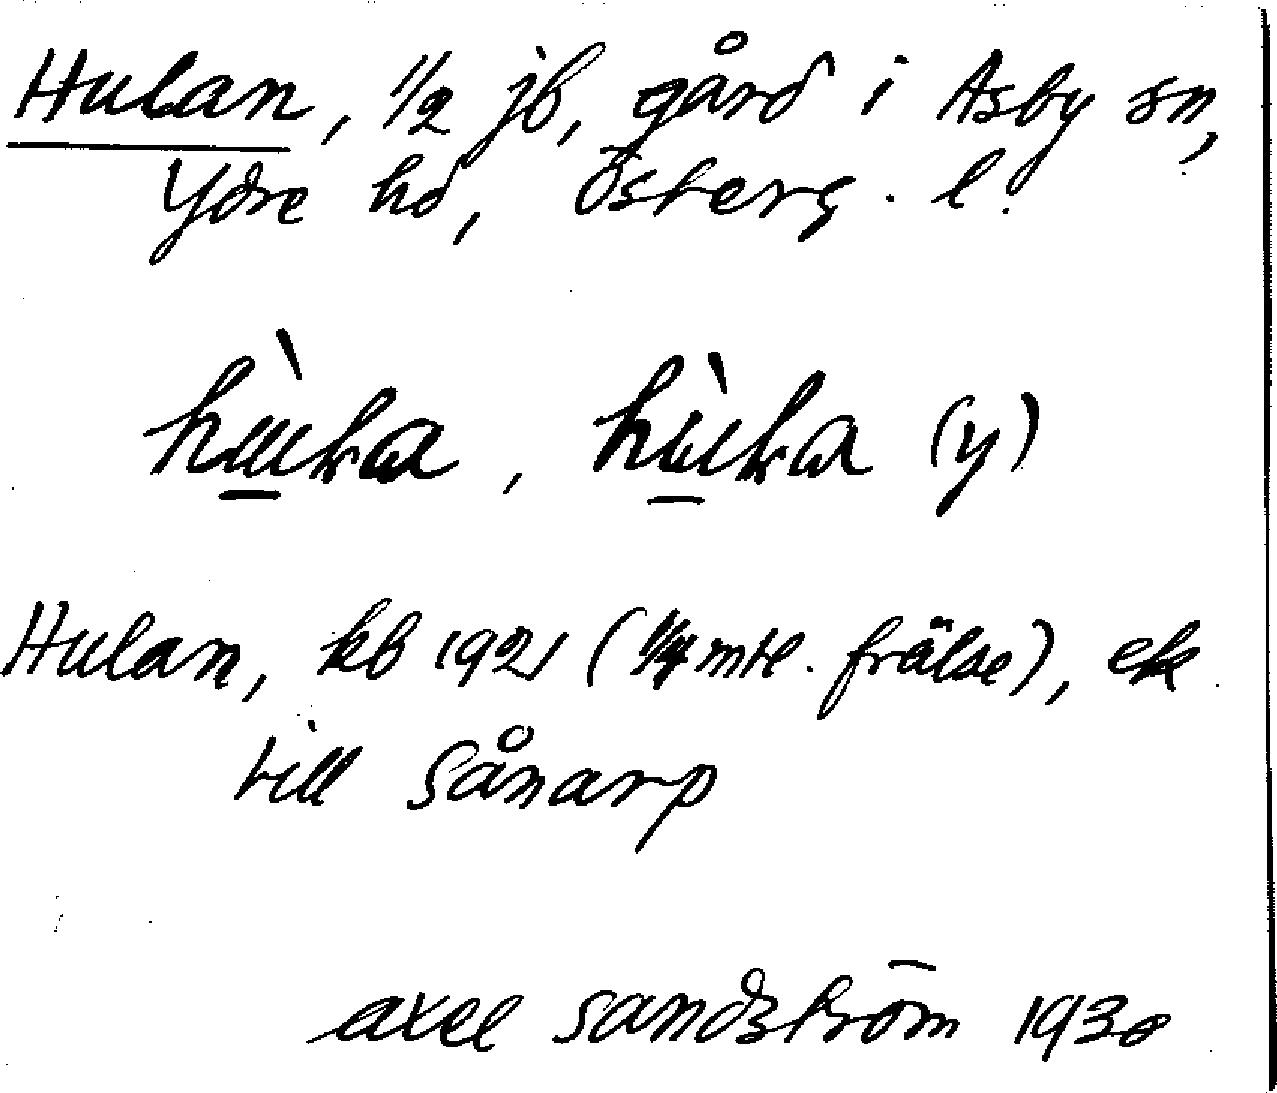 Hulan, 1/2 jb, gård i Asby sn,
Ydre hd, Österg. l.
Hulan, kb 1921 (1/4 mtl. frälse), ek
till Sånarp
axel sandström 1930